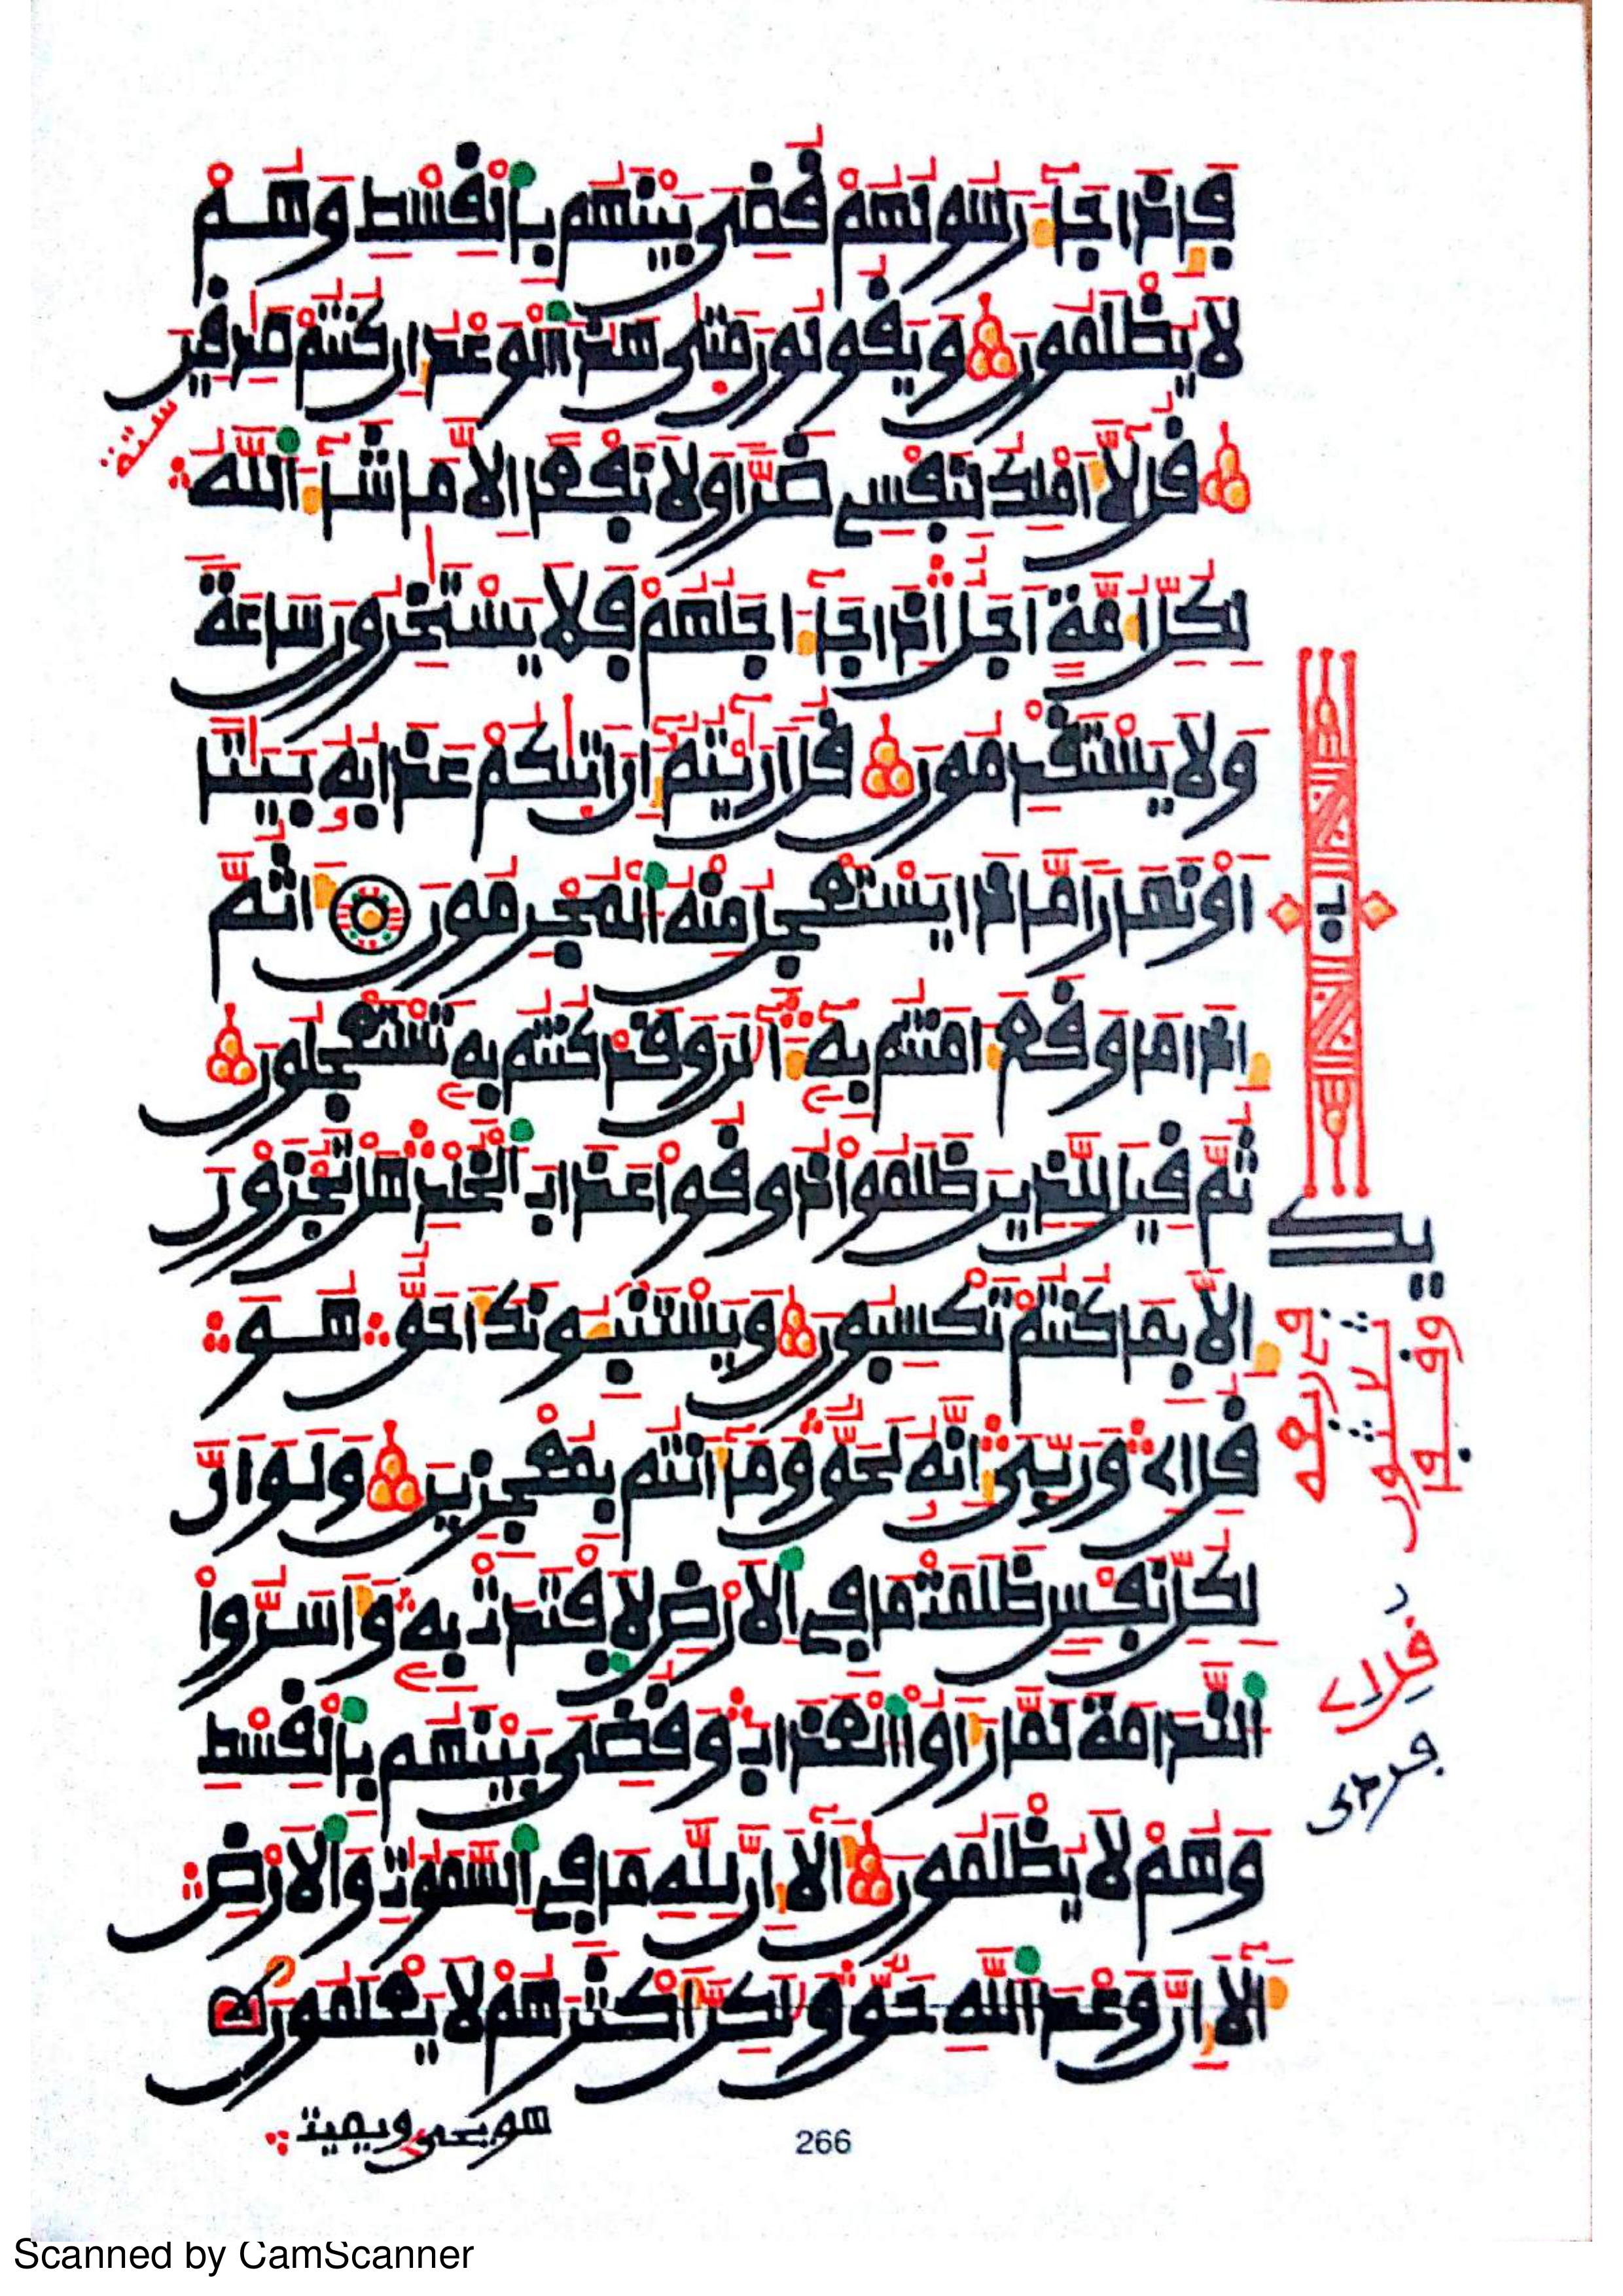 فإذا جآء رسولهم قضي بينهم بالقسط وهم
لا يظلمون ويقولون متى هذا الوعد إن كنتم صدقين
قل لا أملك لنفسي ضرا ولا نفعا إلا ما شآء الله
لكل أمة أجل إذا جآء اجلهم فلا يستخرون ساعة
ولا يستقدمون قل أريتم إن أتيكم عذابه بيتا
أو نهارا ماذا يستعجل منه المجرمون أثم
إذا ما وقع امنتم به آلن وقد كنتم به تستعجلون
ثم قيل للذين ظلموا ذوقوا عذاب الخلد هل تجزون
إلا بما كنتم تكسبون ويستنبونك أحق هو
قل إي وربي إنه لحق وما أنتم بمعجزين ولو أن
لكل نفس ظلمت ما في الارض لافتدت به وأسروا
الندامة لما رأوا العذاب وقضي بينهم بالقسط
وهم لا يظلمون ألا إن لله ما في السموت والارض
ألا إن وعد الله حق ولكن أكثرهم لا يعلمون
هو يحي ويميت
266
Scanned by CamScanner